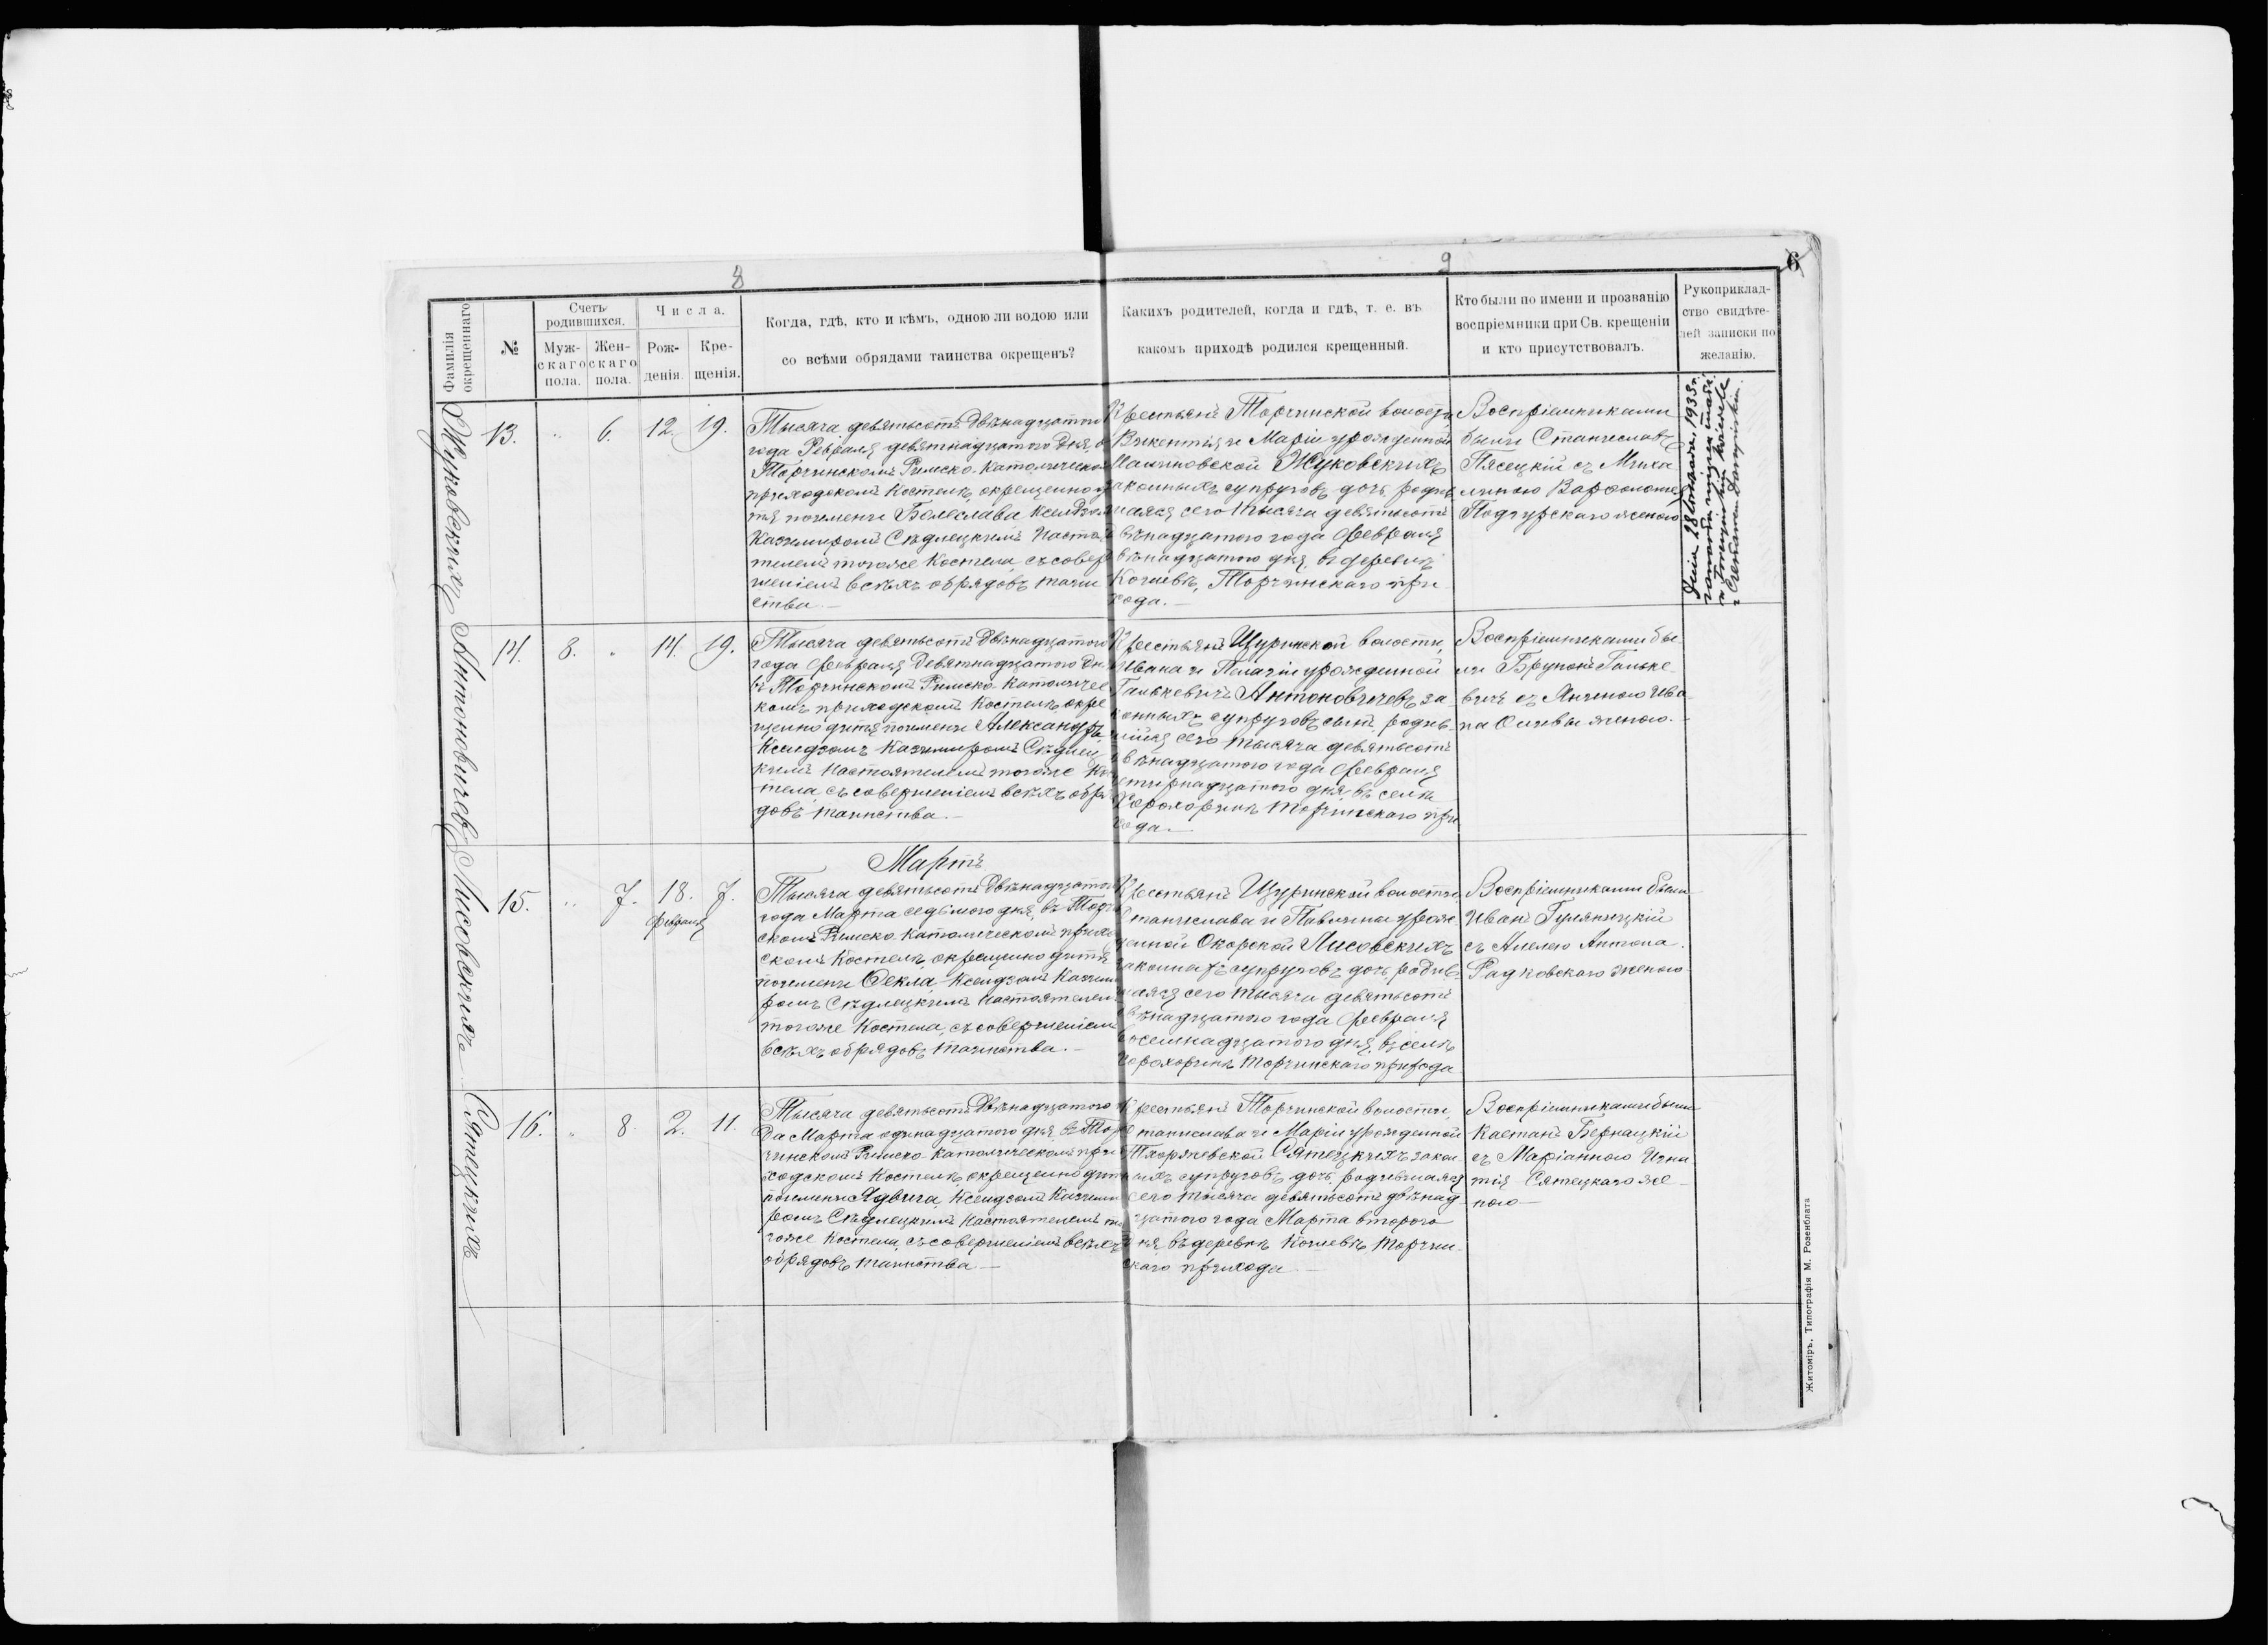 8
9
6
Фамилія окрещеннаго
№
Счетъ родившихся.
Муж-скаго пола.
Жен-скаго пола.
Числа.
Рож-денія.
Кре-щенія.
Когда, гдѣ, кто и кѣмъ, одною ли водою или
со всѣми обрядами таинства окрещенъ?
Какихъ родителей, когда и гдѣ, т. е. въ
какомъ приходѣ родился крещенный.
Кто были по имени и прозванію
воспріемники при Св. крещеніи
и кто присутствовалъ.
Рукоприклад-
ство свидѣте-
лей записки по
желанію.
Жуковскихъ
13.
"
6.
12.
19.
Тысяча девятьсотъ Двѣнадцатого
года Февраля девятнадцатого Дня, въ
Торчинскомъ Римско-Католическом
приходскомъ Костелѣ, окрещено ди
тя по имени Болеслава Ксендзом
Казимиромъ Сѣдлецкимъ Настоя
телемъ тогоже Костела, съ совер
шеніемъ всѣхъ обрядовъ таин
ства. —
Крестьянъ Торчинской волости,
Викентія и Маріи урожденной
Жуковскихъ
законныхъ супруговъ дочь, родив
шаяся сего тысяча девятьсотъ
двѣнадцатого года Февраля
двѣнадцатого дня, въ деревнѣ
Торчинскаго при
хода. —
Воспріемниками
были Станиславъ
Пясецкій съ Миха
линою Варфоломея
женою
Антоновичевъ
14.
8.
"
14.
19.
Тысяча девятьсотъ Двѣнадцатого
года Февраля Девятнадцатого Дня
въ Торчинскомъ Римско-Католичес
комъ приходскомъ Костелѣ, окре
щено дитя по имени Александръ,
Ксендзомъ Казимиромъ Сѣдлец
кимъ Настоятелемъ тогоже Кос
тела, съ совершеніемъ всѣхъ обря
довъ таинства. —
Крестьянъ Щуринской волости,
Ивана и Пелагіи урожденной
Галькевичъ Антоновичевъ за
конныхъ супруговъ сынъ, родив
шійся сего тысяча девятьсотъ
двѣнадцатого года Февраля
четырнадцатого дня, въ селѣ
Торчинскаго при
хода. —
Воспріемниками бы
ли Брунонъ Гальке
вичъ съ Яниною Ива
на женою. —
Лисовскихъ
15.
"
7.
18.
Февраля
7.
Мартъ
Тысяча девятьсотъ Двѣнадцатого
года Марта седьмого дня, въ Торчи
скомъ Римско-Католическомъ прихо
скомъ Костелѣ, окрещено дитя
по имени Ѳекла, Ксендзомъ Казими
ромъ Сѣдлецкимъ Настоятелем
тогоже Костела, съ совершеніем
всѣхъ обрядовъ таинства. —
Крестьянъ Щуринской волости,
Станислава и Павлины урож
денной Окорской Лисовскихъ
законныхъ супруговъ дочь, родив
шаяся сего тысяча девятьсотъ
двѣнадцатого года Февраля
восемнадцатого дня, въ селѣ
Торчинскаго прихода
Воспріемниками были
Иванъ Гуляницкій
съ Антона
Радковскаго женою
Сятецкихъ
16.
"
8.
2.
11.
Тысяча девятьсотъ Двѣнадцатого
да Марта одинадцатого дня, въ Тор
чинскомъ Римско-Католическомъ при
ходскомъ Костелѣ, окрещено дитя
по имени Ядвига, Ксендзомъ Казими
ромъ Сѣдлецкимъ Настоятелемъ то
гоже Костела, съ совершеніемъ всѣхъ
обрядовъ таинства —
Крестьянъ Торчинской волости,
Станислава и Маріи урожденной
Сятецкихъ закон
ныхъ супруговъ дочь, родившаяся
сего тысяча девятьсотъ двѣнад
цатого года Марта второго
дня, въ деревнѣ Торчин
скаго прихода —
Воспріемниками были
Каетанъ Бернацкій
съ Маріанною Игна
тія Сятецкаго же
ною —
Житоміръ, Типографія М. Розенблата